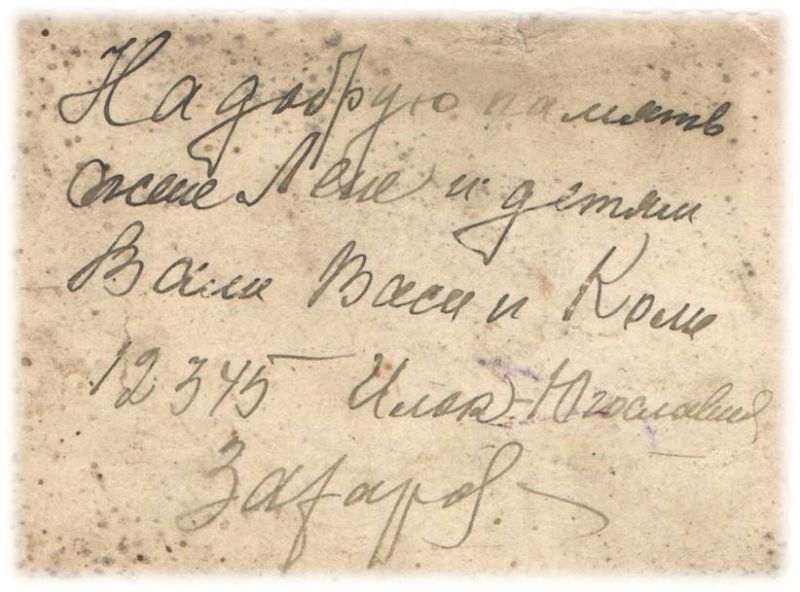 На добрую память
жене Лене и детям
Вали Васи и Коли
12 3 45 Илок-Югославия
Захаров